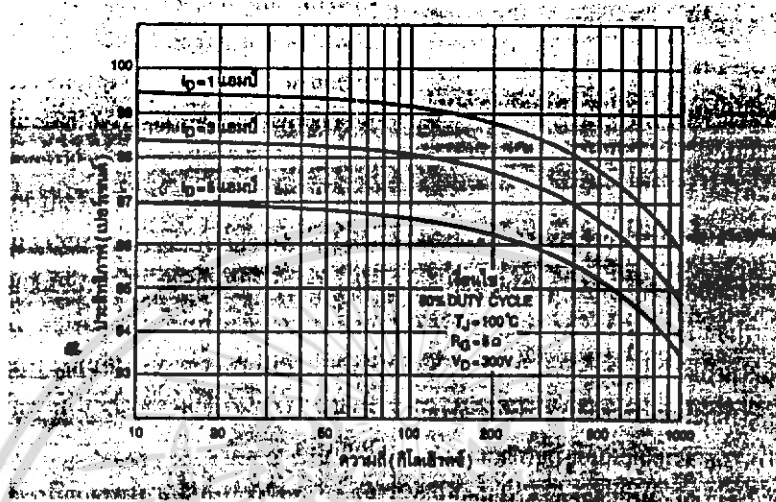 100
I_D=1 แอมป์
99
I_D=3 แอมป์
98
I_D=5 แอมป์
97
96
95
94
93
ประสิทธิภาพ (เปอร์เซนต์)
เงื่อนไข
DUTY CYCLE
T_J=100°C
V_D=300V
10
50
100
200
500
1000
ความถี่ (กิโลเฮิรตซ์)